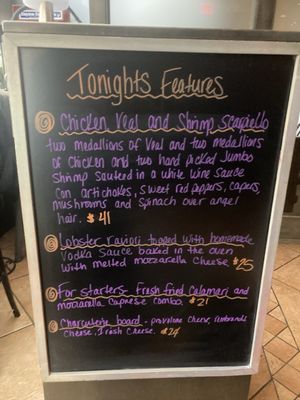 Tonights Features
Chicken Veal and Shrimp Scapiello
two medallions of Veal and two medallions
of Chicken and two hand picked Jumbo
Shrimp sauteed in a white wine sauce
Con artichokes, sweet red peppers, capers,
mushrooms and spinach over angel
hair. $41
Lobster ravioli topped with homemade
Vodka sauce baked in the oven
with melted mozzarella cheese $25
For starters- Fresh fried Calamari and
mozzarella Caprese combo. $21
Charcuterie board - provolone Cheese,
Cheese, Irish Cheese. $24